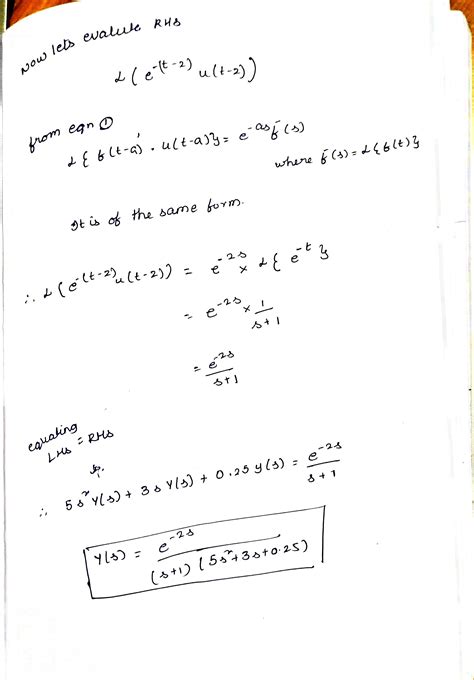 Now lets evalute RHS
L(e^-(t-2) u(t-2))
from eqn ①
L{f(t-a) . u(t-a)} = e^-as f̄(s)
where f̄(s) = L{f(t)}
It is of the same form.
∴ L(e^-(t-2) u(t-2)) = e^-2s × L{e^-t}
= e^-2s × 1/s+1
= e^-2s/s+1
equating
LHS = RHS
∴ 5s²Y(s) + 3sY(s) + 0.25y(s) = e^-2s/s+1
Y(s) = e^-2s/(s+1)(5s²+3s+0.25)